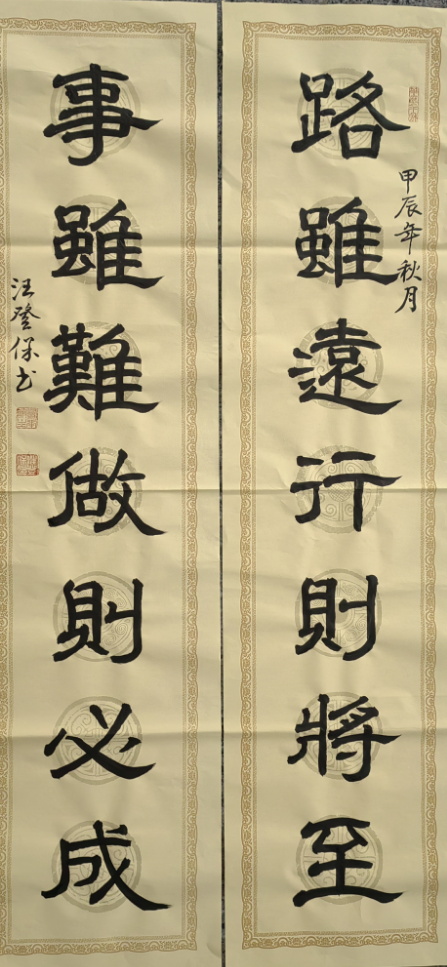 路雖遠行則將至
甲辰年秋月
事雖難做則必成
汪登保书